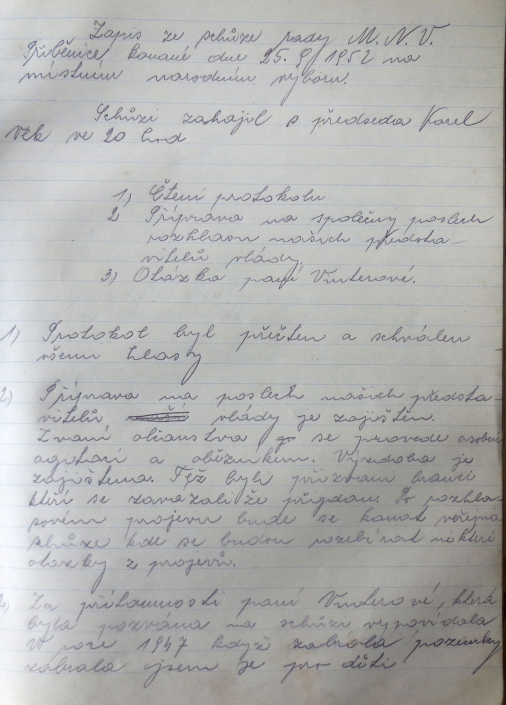 Zapis ze schůze rady M.N.V.
Příběnice konané dne 25.9/1952 na
místním narodním výboru.
Schůzi zahájil s předseda Karel
Vlk ve 20 hod
1) Čtení protokolu
2 Příprava na společný poslech
rozhlasu našich předsta-
vitelů vlády.
3) Otázka paní Vinterové.
1) Protokol byl přečten a schválen
všemi hlasy
2) Příprava na poslech našich předsta-
vitelů vlády je zajištěn.
Zvaní občanstva se provede osobní
agitací a oběžníkem. Výzdoba je
zajištěna. Též byli přizvani branci
kteří se zavazali že přijdou. Po rozhla-
sovém projevu bude se konat veřejná
schůze kde se budou rozebírat některé
otazky z projevů.
3) Za přítomnosti paní Vinterové, která
byla pozvána na schůzi vypovídala
V roce 1947 když zabrala pozemky
zabrala jsem je pro děti